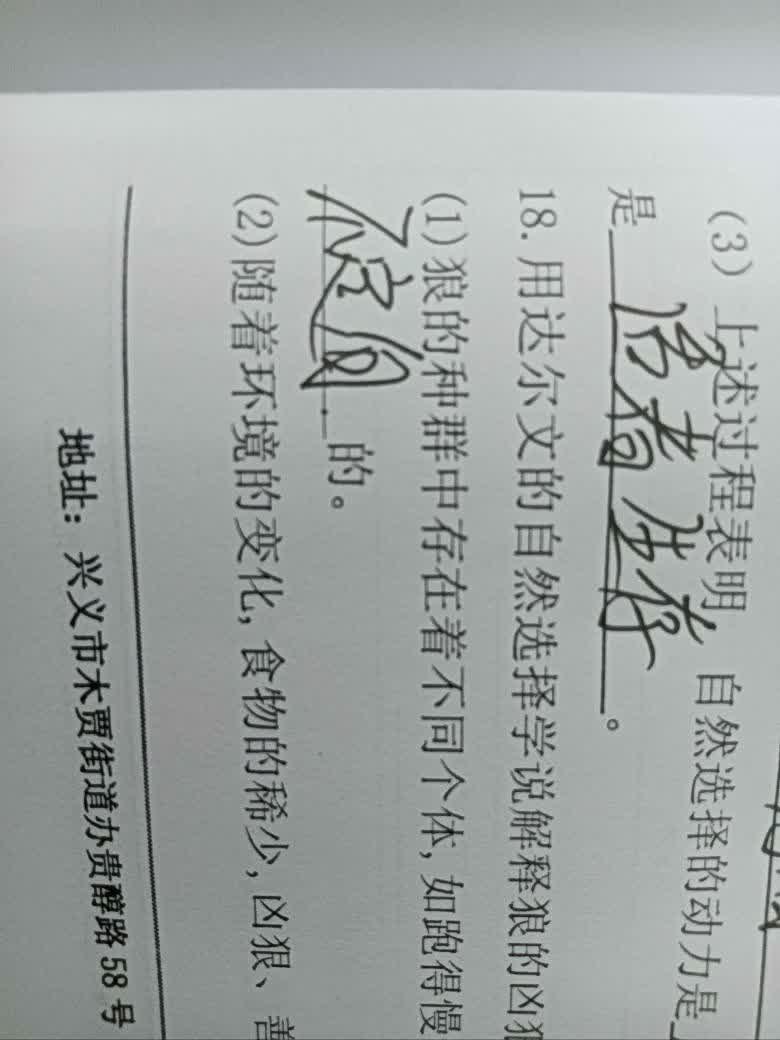 (3) 上述过程表明 自然选择的动力是
是 适者生存 。
18. 用达尔文的自然选择学说解释狼的凶狠
(1) 狼的种群中存在着不同个体, 如跑得慢
的。
(2) 随着环境的变化, 食物的稀少, 凶狠、善
地址: 兴义市木贾街道办贵醇路 58 号